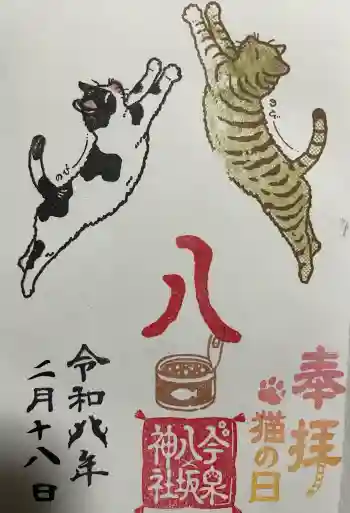 のび
のび
八
奉拝
猫の日
今泉
八坂
神社
令和八年
二月十八日